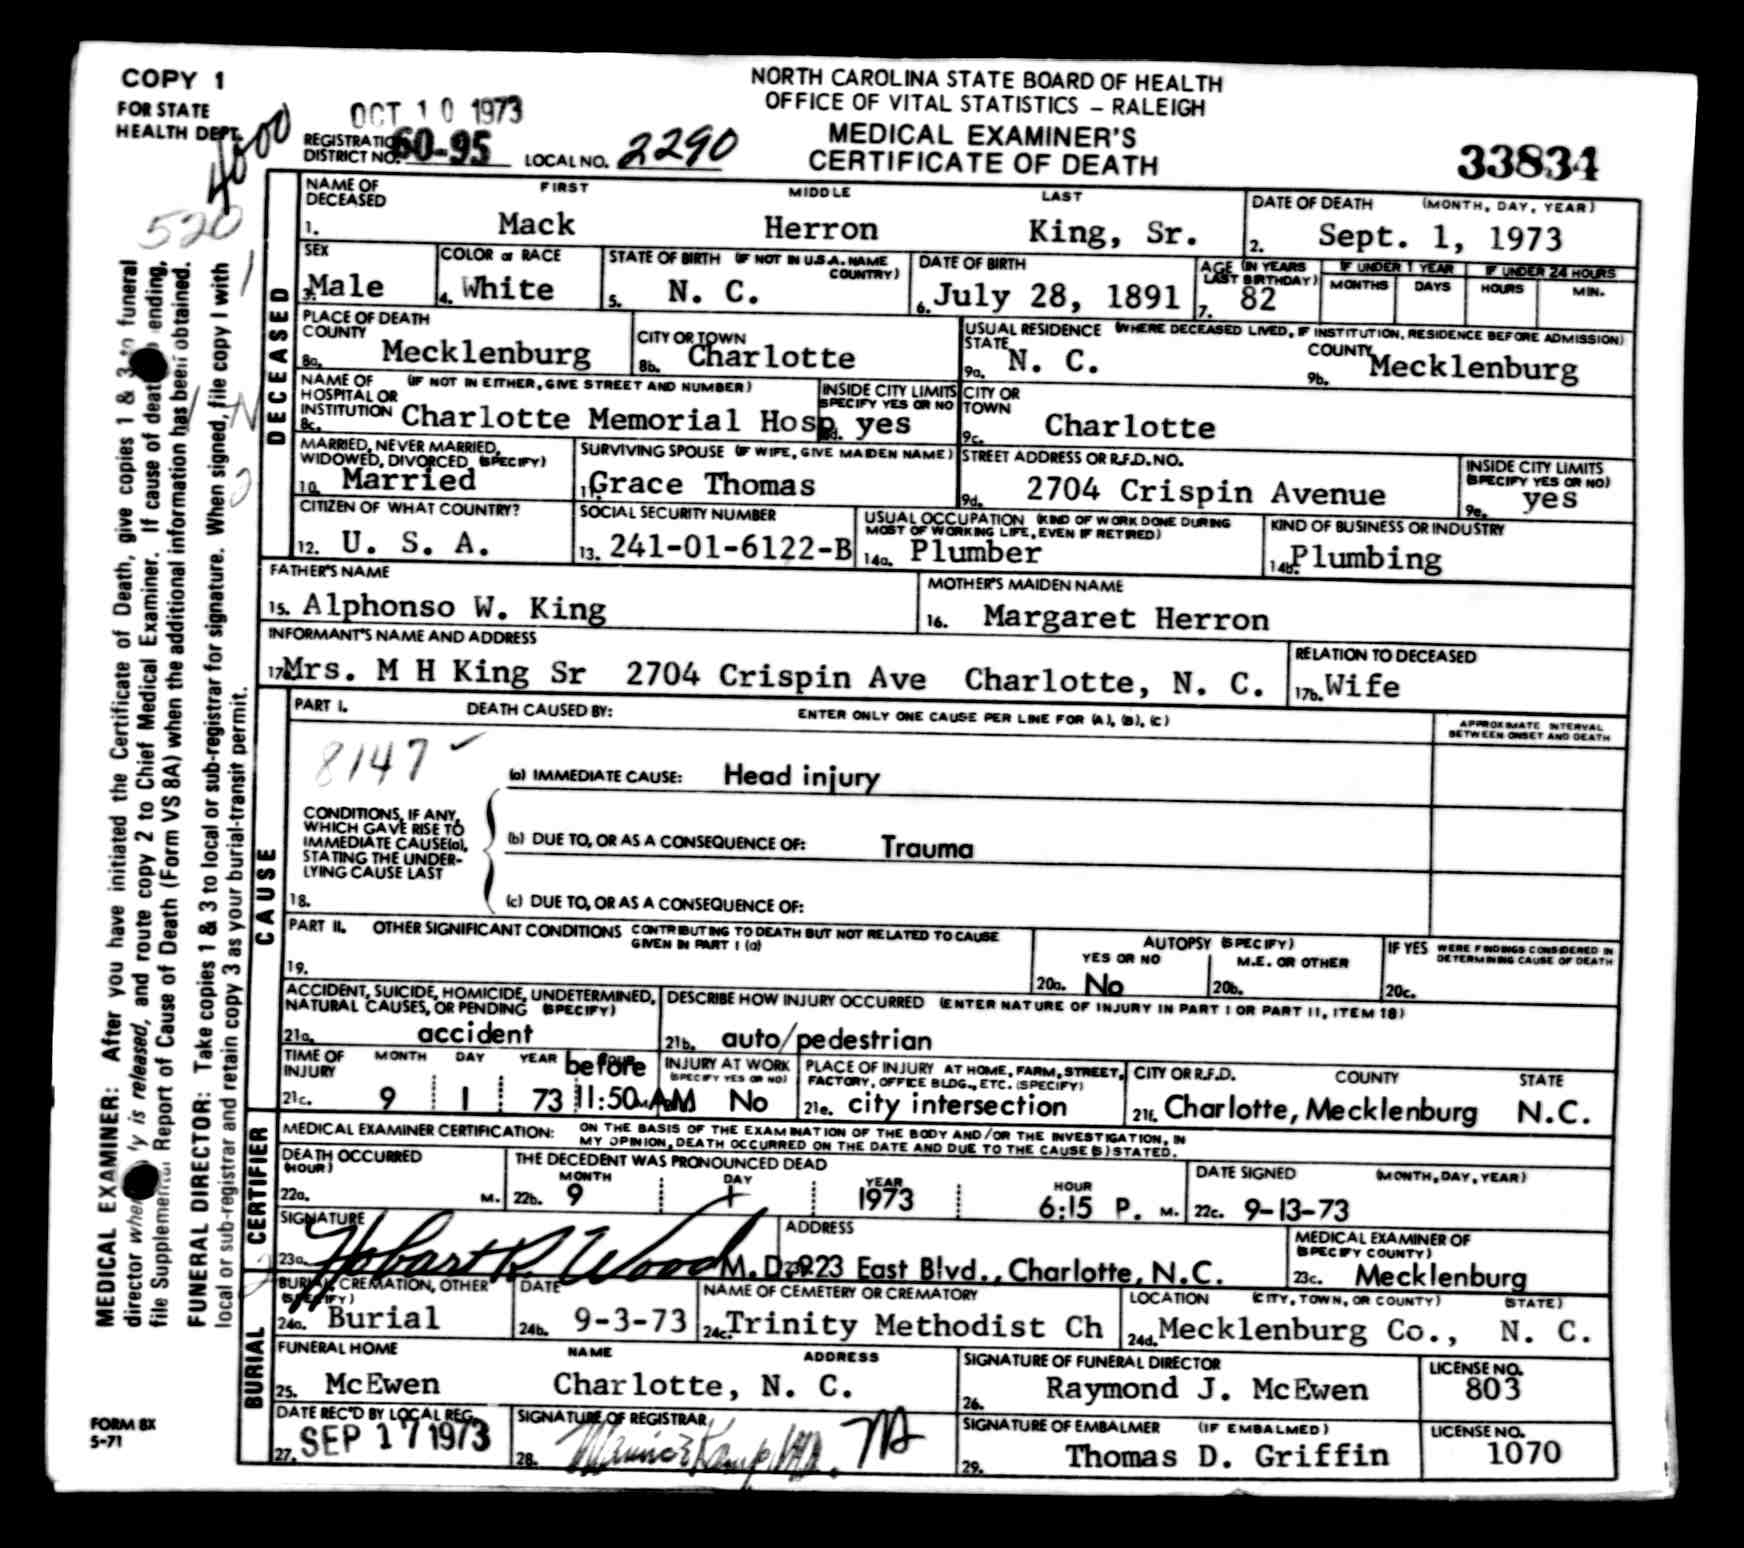 COPY 1
FOR STATE
HEALTH DEPT.
OCT 10 1973
REGISTRATION
DISTRICT NO. 60-95 LOCAL NO. 2290
NORTH CAROLINA STATE BOARD OF HEALTH
OFFICE OF VITAL STATISTICS – RALEIGH
MEDICAL EXAMINER'S
CERTIFICATE OF DEATH
33834
520
MEDICAL EXAMINER: After you have initiated the Certificate of Death, give copies 1 & 3 to funeral
director when body is released, and route copy 2 to Chief Medical Examiner. If cause of death is pending,
file Supplemental Report of Cause of Death (Form VS 8A) when the additional information has been obtained.
FUNERAL DIRECTOR: Take copies 1 & 3 to local or sub-registrar for signature. When signed, file copy 1 with
local or sub-registrar and retain copy 3 as your burial-transit permit.
DECEASED
NAME OF DECEASED FIRST MIDDLE LAST
1. Mack Herron King, Sr.
DATE OF DEATH (MONTH, DAY, YEAR)
2. Sept. 1, 1973
SEX
3. Male
COLOR or RACE
4. White
STATE OF BIRTH (IF NOT IN U.S.A. NAME COUNTRY)
5. N. C.
DATE OF BIRTH
6. July 28, 1891
AGE (IN YEARS LAST BIRTHDAY)
7. 82
IF UNDER 1 YEAR
MONTHS DAYS
IF UNDER 24 HOURS
HOURS MIN.
PLACE OF DEATH
COUNTY
8a. Mecklenburg
CITY OR TOWN
8b. Charlotte
USUAL RESIDENCE (WHERE DECEASED LIVED, IF INSTITUTION, RESIDENCE BEFORE ADMISSION)
STATE
9a. N. C.
COUNTY
9b. Mecklenburg
NAME OF HOSPITAL OR INSTITUTION (IF NOT IN EITHER, GIVE STREET AND NUMBER)
8c. Charlotte Memorial Hosp
INSIDE CITY LIMITS
SPECIFY YES OR NO
8d. yes
CITY OR TOWN
9c. Charlotte
MARRIED, NEVER MARRIED,
WIDOWED, DIVORCED (SPECIFY)
10. Married
SURVIVING SPOUSE (IF WIFE, GIVE MAIDEN NAME)
11. Grace Thomas
STREET ADDRESS OR R.F.D. NO.
9d. 2704 Crispin Avenue
INSIDE CITY LIMITS
(SPECIFY YES OR NO)
9e. yes
CITIZEN OF WHAT COUNTRY?
12. U. S. A.
SOCIAL SECURITY NUMBER
13. 241-01-6122-B
USUAL OCCUPATION (KIND OF WORK DONE DURING
MOST OF WORKING LIFE, EVEN IF RETIRED)
14a. Plumber
KIND OF BUSINESS OR INDUSTRY
14b. Plumbing
FATHER'S NAME
15. Alphonso W. King
MOTHER'S MAIDEN NAME
16. Margaret Herron
INFORMANT'S NAME AND ADDRESS
17a. Mrs. M H King Sr 2704 Crispin Ave Charlotte, N. C.
RELATION TO DECEASED
17b. Wife
CAUSE
PART I. DEATH CAUSED BY: ENTER ONLY ONE CAUSE PER LINE FOR (A), (B), (C)
APPROXIMATE INTERVAL
BETWEEN ONSET AND DEATH
8147 ✓
(a) IMMEDIATE CAUSE: Head injury
CONDITIONS, IF ANY,
WHICH GAVE RISE TO
IMMEDIATE CAUSE(a),
STATING THE UNDER-
LYING CAUSE LAST
(b) DUE TO, OR AS A CONSEQUENCE OF: Trauma
18.
(c) DUE TO, OR AS A CONSEQUENCE OF:
PART II. OTHER SIGNIFICANT CONDITIONS CONTRIBUTING TO DEATH BUT NOT RELATED TO CAUSE
GIVEN IN PART I (a)
19.
AUTOPSY (SPECIFY)
YES OR NO
20a. No
M.E. OR OTHER
20b.
IF YES WERE FINDINGS CONSIDERED IN
DETERMINING CAUSE OF DEATH
20c.
ACCIDENT, SUICIDE, HOMICIDE, UNDETERMINED,
NATURAL CAUSES, OR PENDING (SPECIFY)
21a. accident
DESCRIBE HOW INJURY OCCURRED (ENTER NATURE OF INJURY IN PART I OR PART II, ITEM 18)
21b. auto/pedestrian
TIME OF INJURY MONTH DAY YEAR HOUR
before
21c. 9 1 73 11:50 AM
INJURY AT WORK
(SPECIFY YES OR NO)
No
PLACE OF INJURY AT HOME, FARM, STREET,
FACTORY, OFFICE BLDG., ETC. (SPECIFY)
21e. city intersection
CITY OR R.F.D. COUNTY STATE
21f. Charlotte, Mecklenburg N.C.
CERTIFIER
MEDICAL EXAMINER CERTIFICATION: ON THE BASIS OF THE EXAMINATION OF THE BODY AND/OR THE INVESTIGATION, IN
MY OPINION, DEATH OCCURRED ON THE DATE AND DUE TO THE CAUSE(S) STATED.
DEATH OCCURRED
(HOUR)
22a. M.
THE DECEDENT WAS PRONOUNCED DEAD
MONTH DAY YEAR HOUR
22b. 9 1 1973 6:15 P. M.
DATE SIGNED (MONTH, DAY, YEAR)
22c. 9-13-73
SIGNATURE
23a. Hobart R. Wood M. D.
ADDRESS
923 East Blvd., Charlotte, N.C.
MEDICAL EXAMINER OF
(SPECIFY COUNTY)
23c. Mecklenburg
BURIAL
BURIAL, CREMATION, OTHER
(SPECIFY)
24a. Burial
DATE
24b. 9-3-73
NAME OF CEMETERY OR CREMATORY
24c. Trinity Methodist Ch
LOCATION (CITY, TOWN, OR COUNTY) STATE)
24d. Mecklenburg Co., N. C.
FUNERAL HOME NAME ADDRESS
25. McEwen Charlotte, N. C.
SIGNATURE OF FUNERAL DIRECTOR
26. Raymond J. McEwen
LICENSE NO.
803
DATE REC'D BY LOCAL REG.
27. SEP 17 1973
SIGNATURE OF REGISTRAR
28.
SIGNATURE OF EMBALMER (IF EMBALMED)
29. Thomas D. Griffin
LICENSE NO.
1070
FORM 8X
5-71